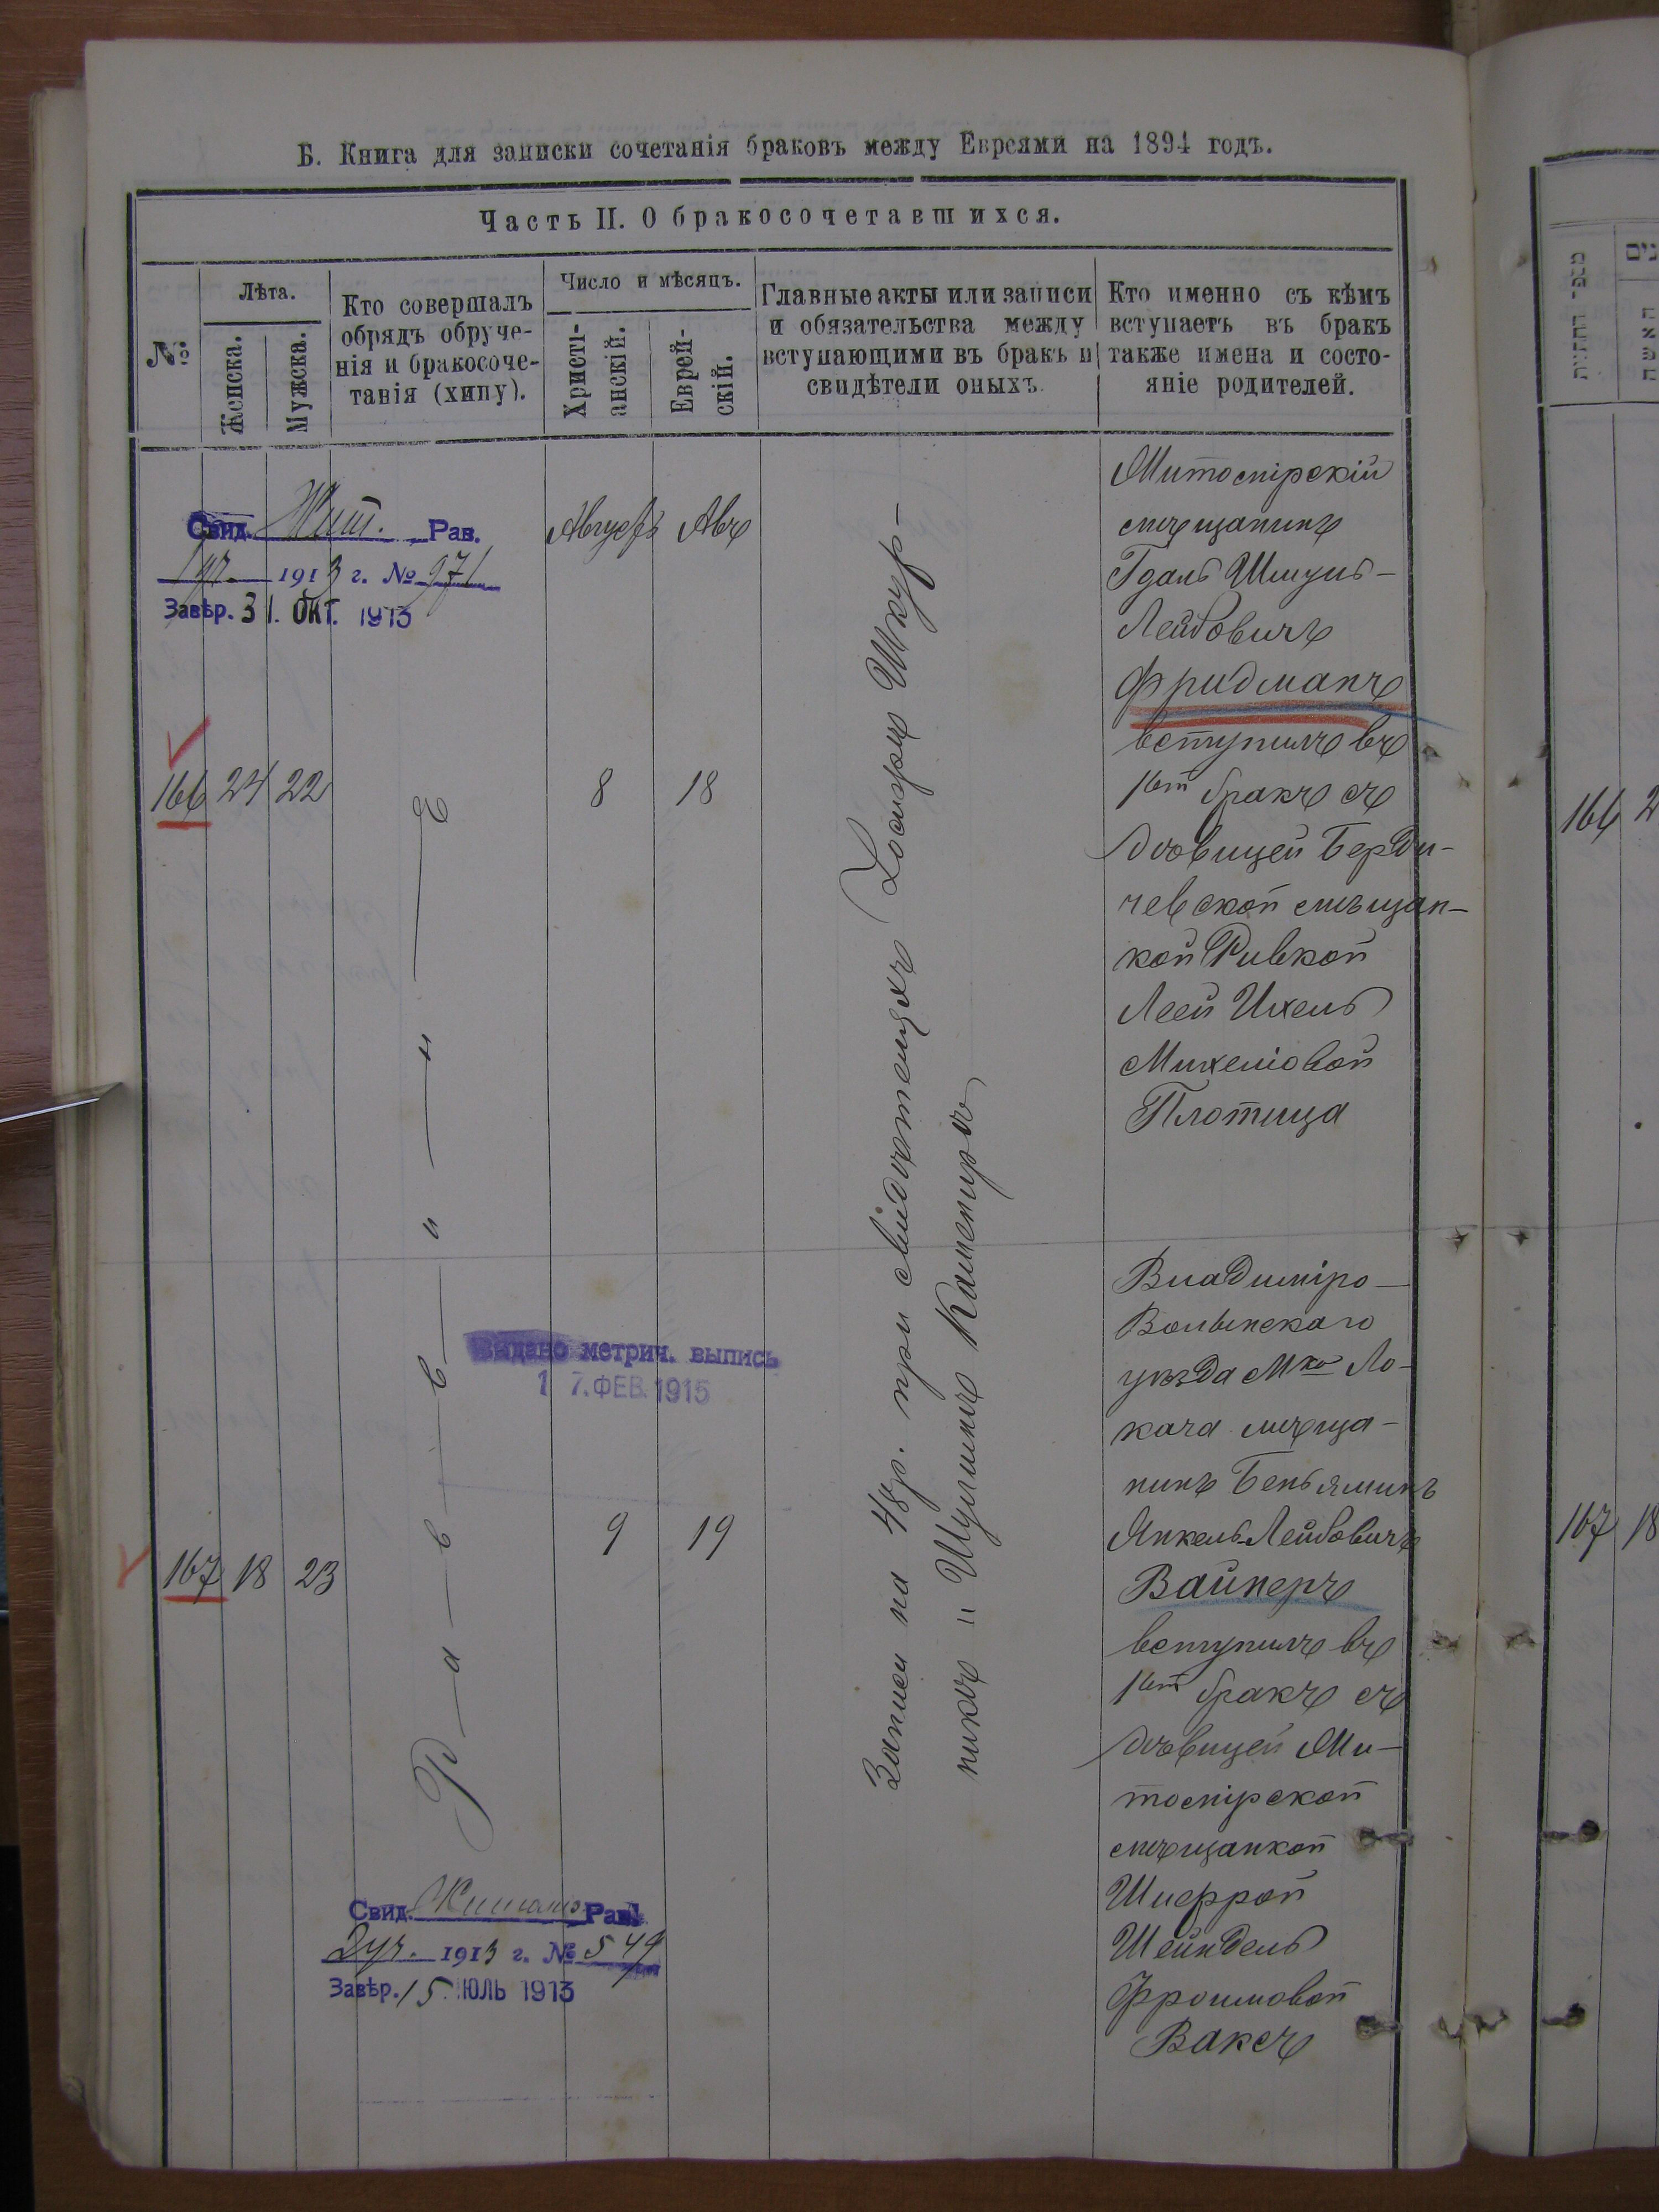 Б. Книга для записки сочетанія браковъ между Евреями на 1894 годъ.
Часть II. О бракосочетавшихся.
№
Лѣта.
Женска.
Мужска.
Кто совершалъ
обрядъ обруче-
нія и бракосоче-
танія (хипу).
Число и мѣсяцъ.
Христі-
анскій.
Еврей-
скій.
Главные акты или записи
и обязательства между
вступающими въ бракъ и
свидѣтели оныхъ.
Кто именно съ кѣмъ
вступаетъ въ бракъ
также имена и состо-
яніе родителей.
Свид. Жит. Рав.
1 уч. 1913 г. № 971
Завѣр. 31. ОКТ. 1913
Августъ Авъ
166 24 22
8 18
Р—а—в—в—и—н—ъ
Записи на 48 р. при свидѣтеляхъ Шкур-
никъ и Шулимъ Камениръ
Житомірскій
мѣщанинъ
Гдаль Шмуль-
Лейбовичъ
Фридманъ
вступилъ въ
1ый бракъ съ
дѣвицей Берди-
чевской мѣщан-
кой Ривкой
Леей Ихель
Михелювой
Плотица
Владиміро-
Волынскаго
уѣзда Мко Ло-
кача мѣща-
нинъ Беньяминъ
Янкель-Лейбовичъ
Вайнеръ
вступилъ въ
1ый бракъ съ
дѣвицей Жи-
томірской
мѣщанкой
Шифрой
Шейндель
Фроимовой
Ваксъ
Выдано метрич. выпись
17. ФЕВ. 1915
167 18 23
9 19
Свид. Житом. Рав.
2 уч. 1913 г. № 549
Завѣр. 15 ІЮЛЬ 1913
166 2
167 18